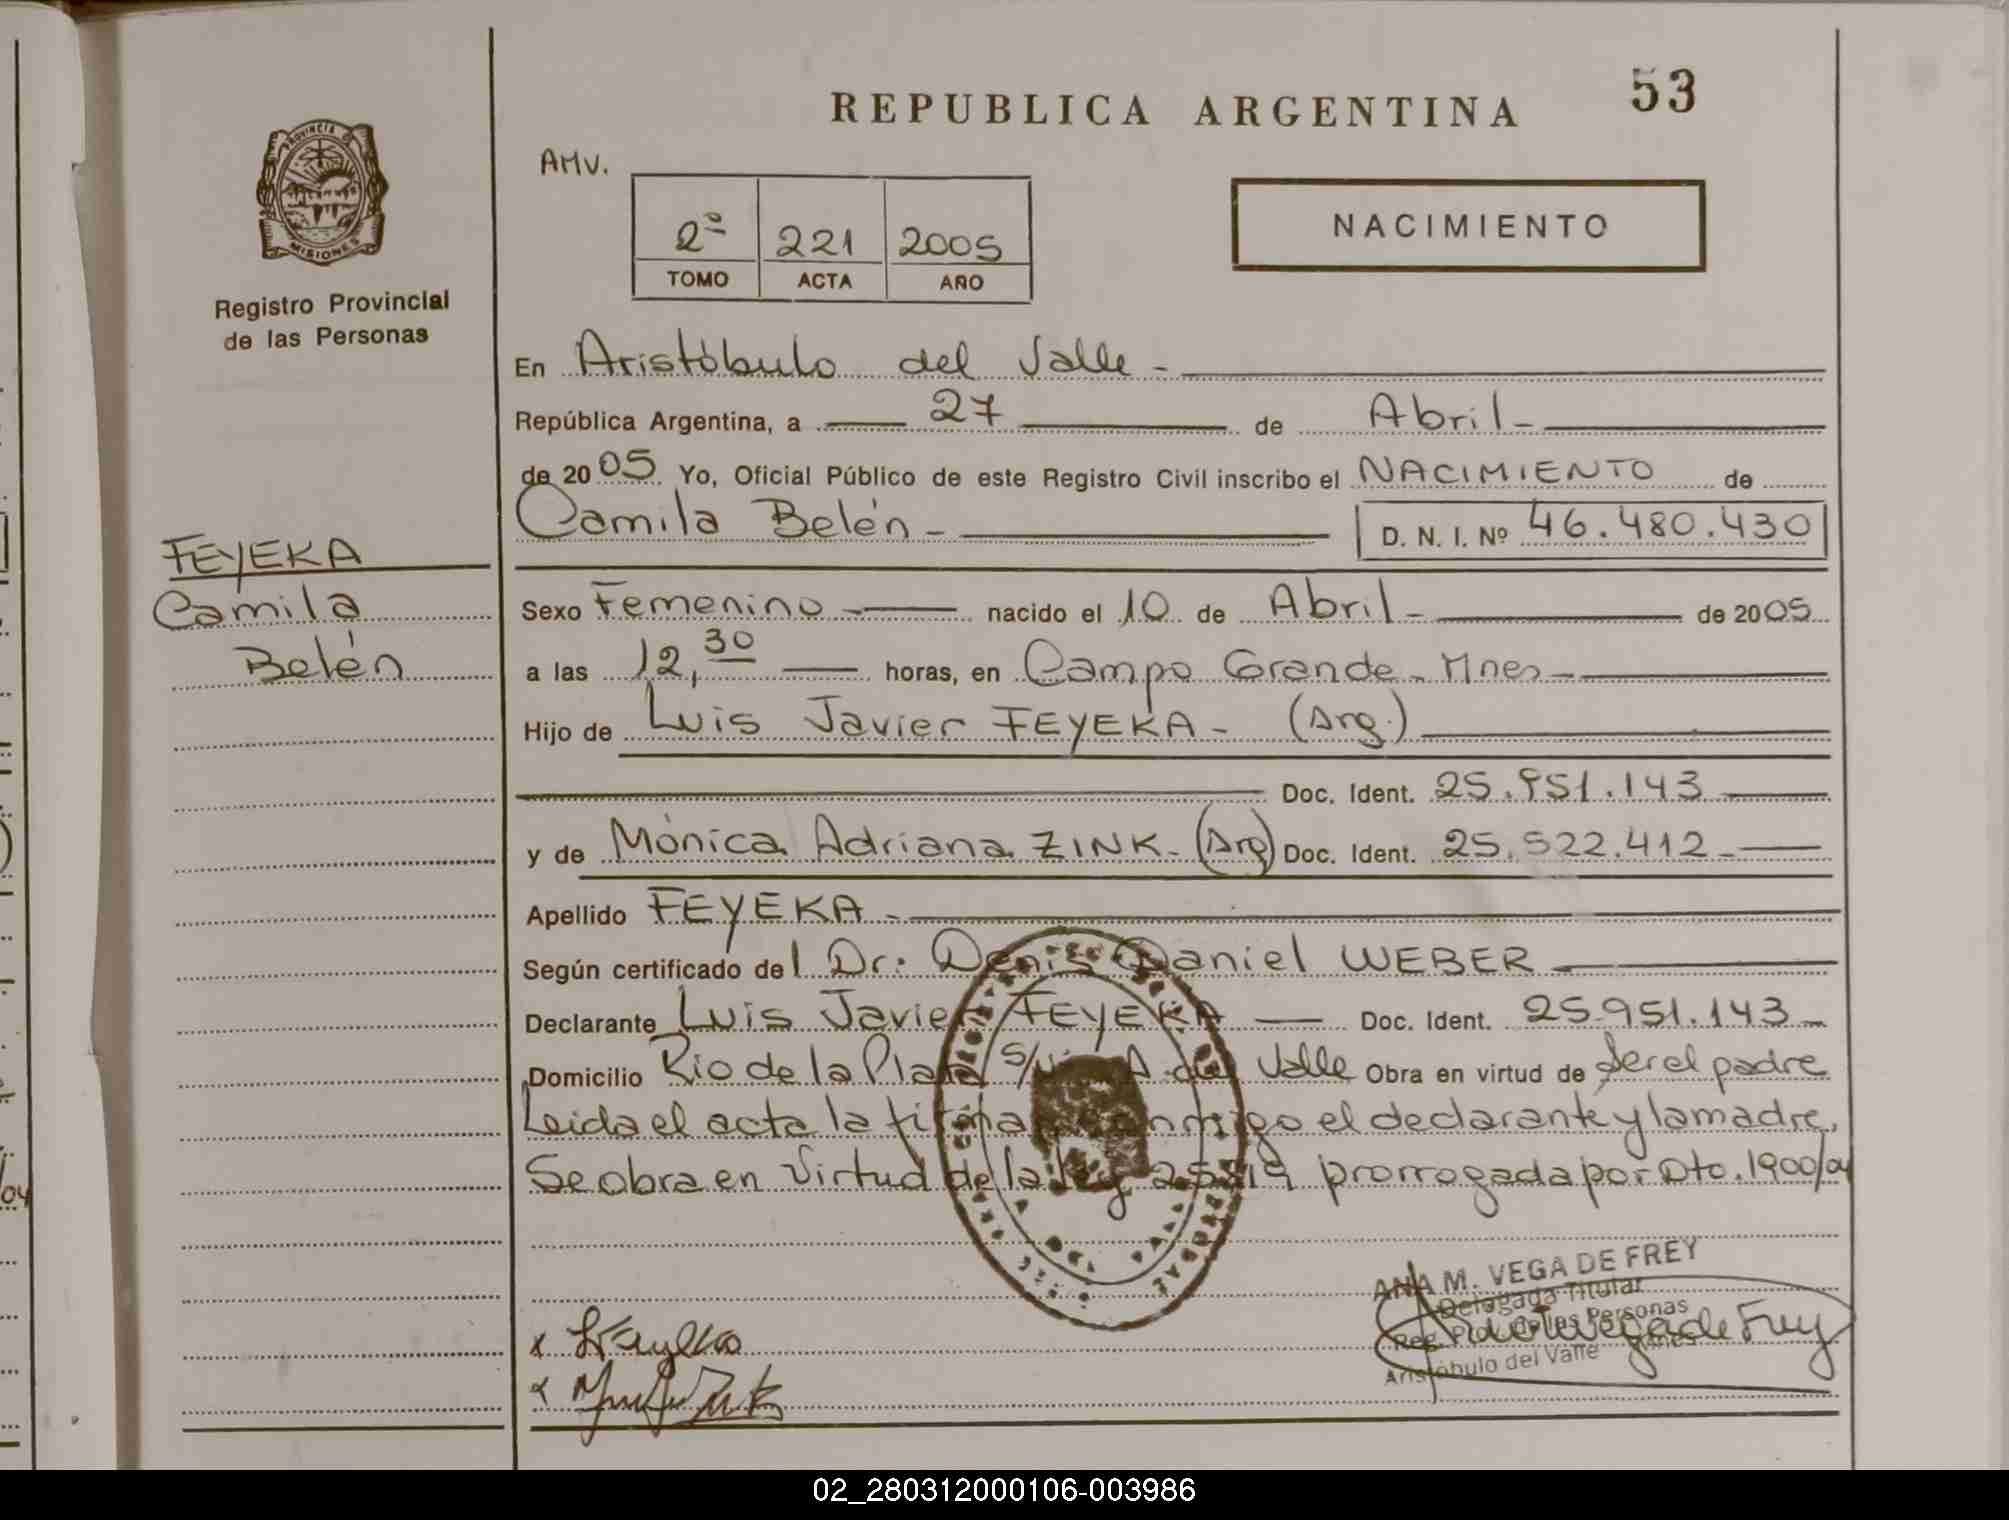 REPUBLICA ARGENTINA
53
PROVINCIA D
MISIONES
Registro Provincial
de las Personas
AMV.
2º 221 2005
TOMO ACTA AÑO
NACIMIENTO
En Aristóbulo del Valle -
República Argentina, a 27 de Abril -
de 2005 Yo, Oficial Público de este Registro Civil inscribo el NACIMIENTO de
Camila Belén - D. N. I. Nº 46.480.430
FEYEKA
Camila
Belén
Sexo Femenino - nacido el 10 de Abril - de 2005
a las 12,30 horas, en Campo Grande - Mnes -
Hijo de Luis Javier FEYEKA - (Arg.)
Doc. Ident. 25.951.143
y de Mónica Adriana ZINK - (Arg) Doc. Ident. 25.522.412 -
Apellido FEYEKA -
Según certificado del Dr. Denis Daniel WEBER
Declarante Luis Javier FEYEKA Doc. Ident. 25.951.143 -
Domicilio Rio de la Plata s/n A. del Valle Obra en virtud de Ser el padre
Leida el acta la firman conmigo el declarante y la madre.
Se obra en Virtud de la Ley 25819 prorrogada por Dto. 1900/04
ANA M. VEGA DE FREY
Delegada Titular
Reg. Pcial. de las Personas
Aristóbulo del Valle Mnes
02_280312000106-003986